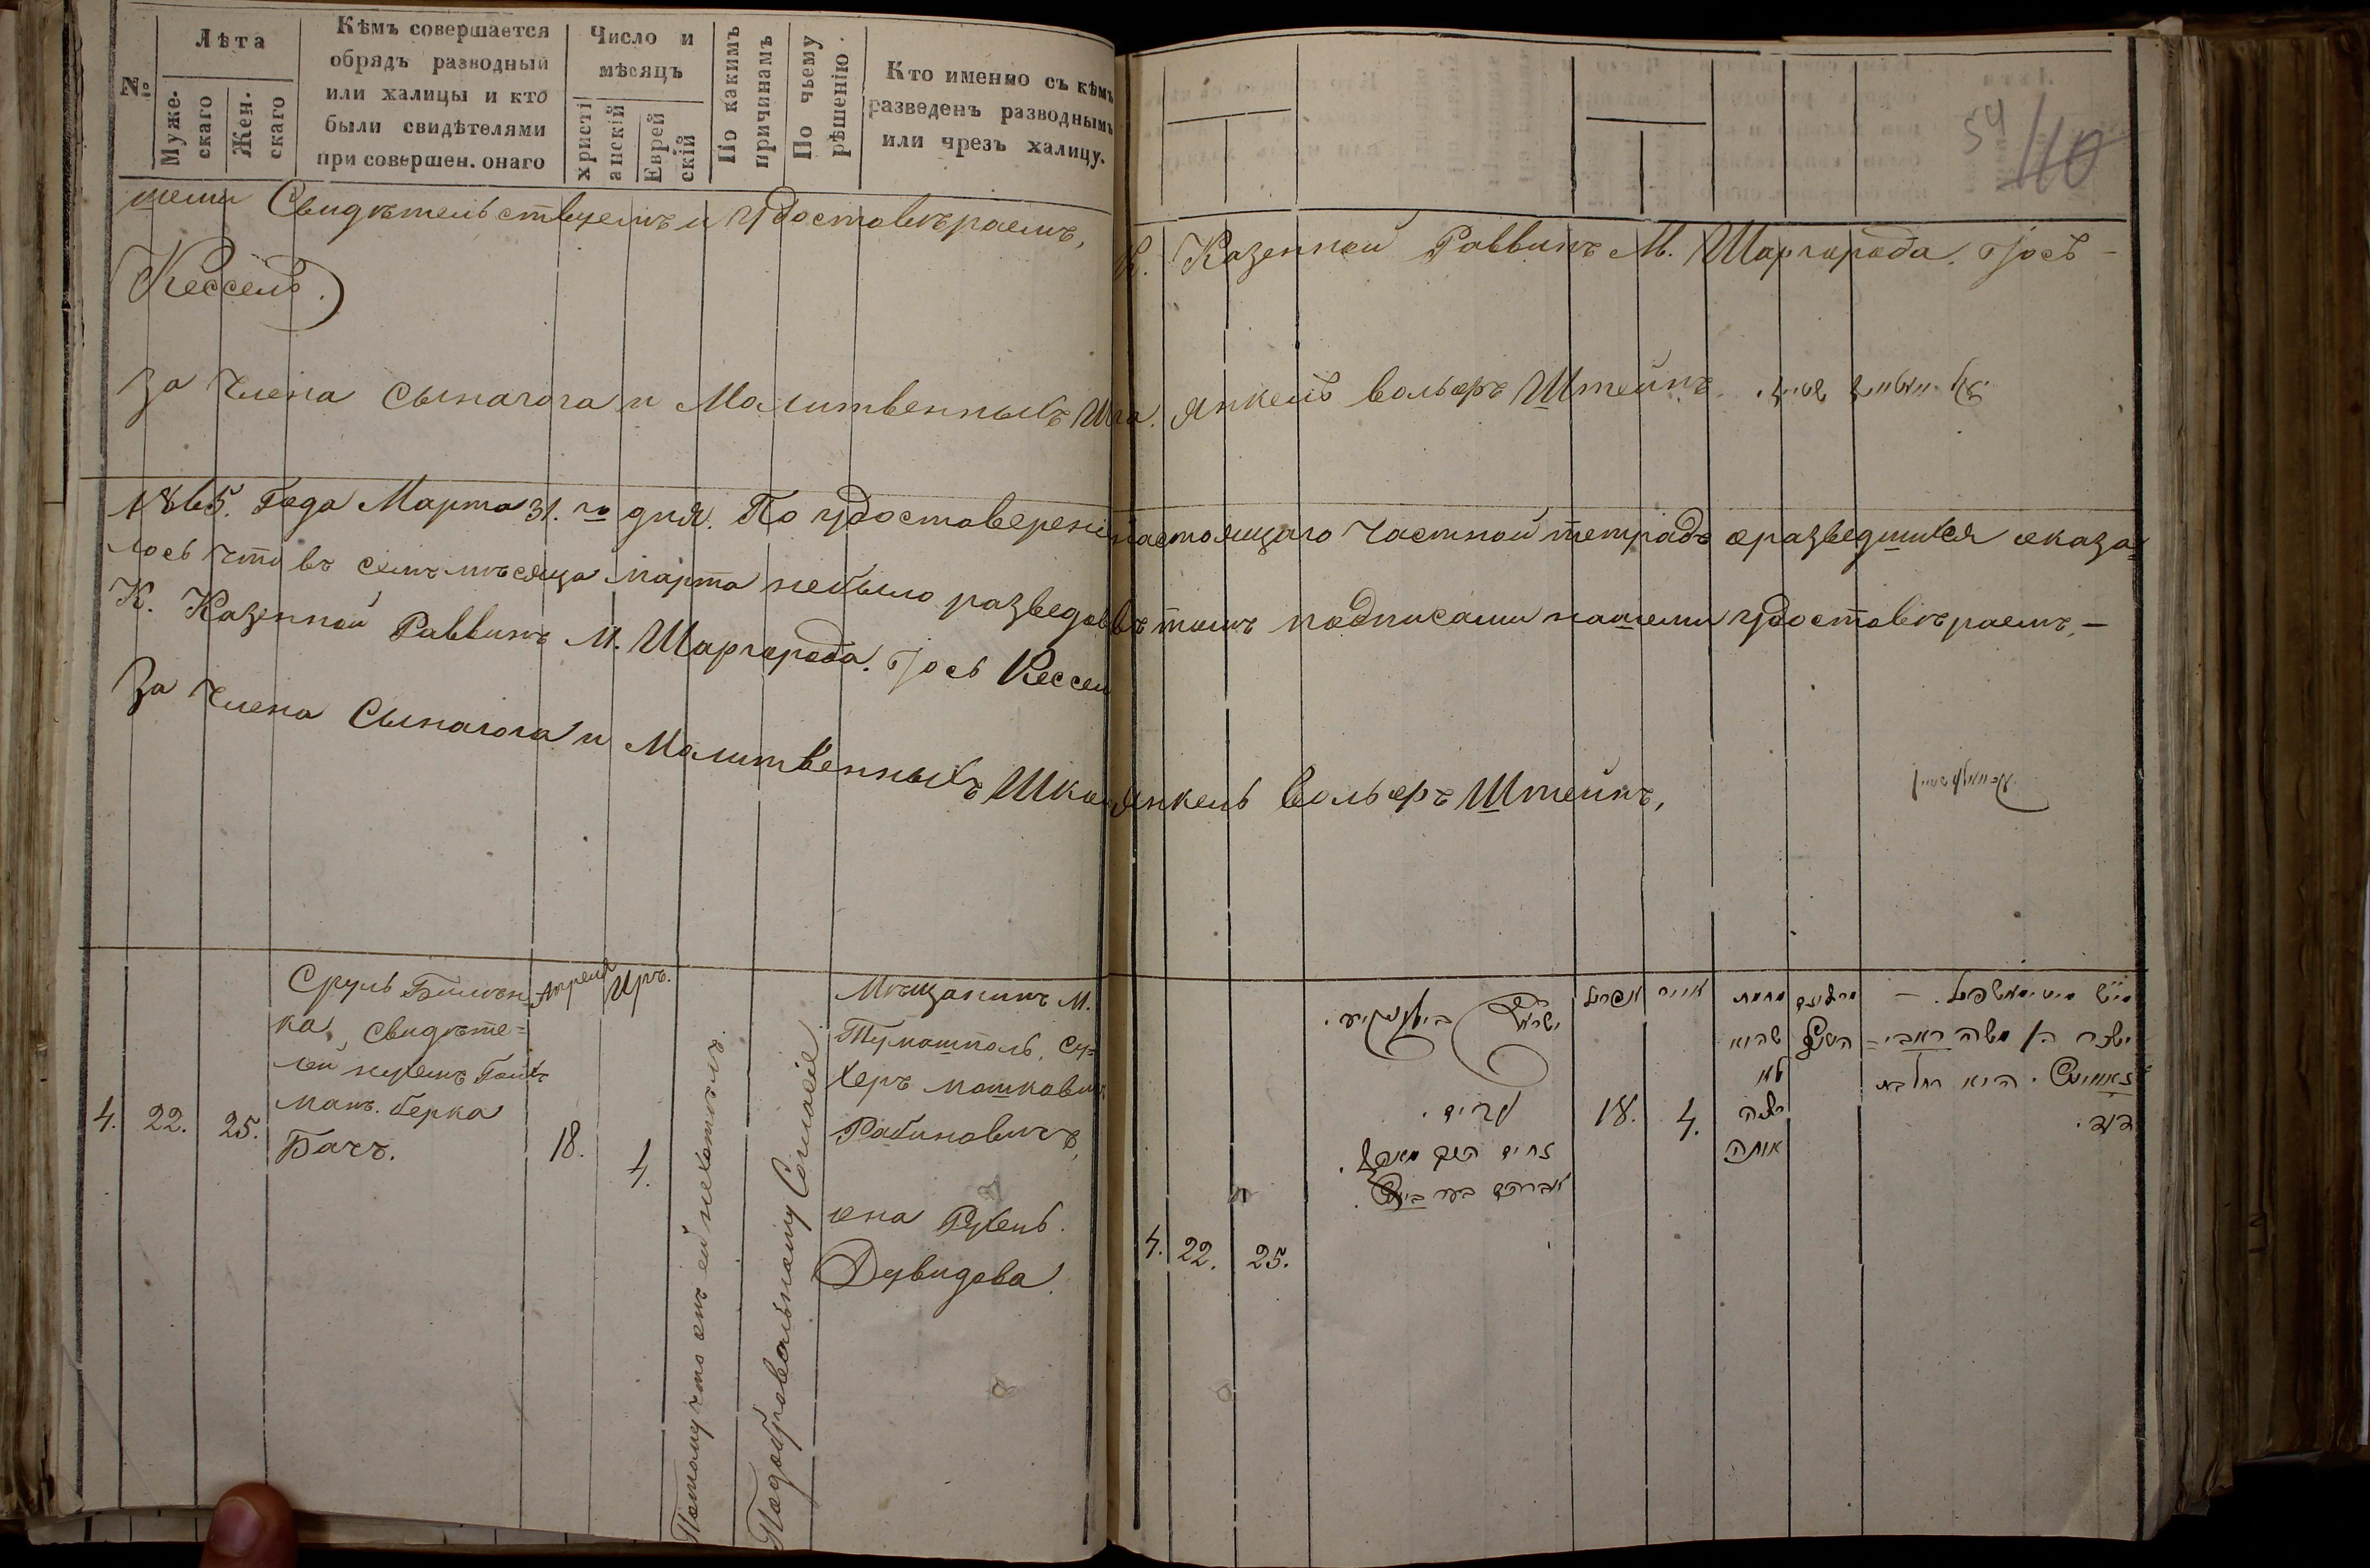 №
Лѣта
Муже-
скаго
Жен.
скаго
Кѣмъ совершается
обрядъ разводный
или халицы и кто
были свидѣтелями
при совершен. онаго
Число и
мѣсяцъ
христі
анскій
Еврей
скій
По какимъ
причинамъ
По чьему
рѣшенію.
Кто именно съ кѣмъ
разведенъ разводнымъ
или чрезъ халицу.
54
110
шеми Свидѣтельствуемъ и удостовѣраемъ,
К. Казенной Раввинъ М. Шаргорода. Іось -
Кессель.
За Члена Сынагога и Молитвенныхъ Янкель вольеръ Штейнъ.
1865. Года Марта 31. го дня. По удостоверені настоящаго Частной тетрадъ оразведшихся оказа=
лось что въ семъ мѣсяца марта небыло разведов въ томъ подписами нашеми удостовѣраемъ, —
К. Казенной Раввинъ М. Шаргорода. Іось Кессел
За Члена Сынагога и Молитвенныхъ Шкъ Янкель Вольеръ Штейнъ,
4.
22.
25.
Сруль
ка, Свидѣте=
лей нухемъ
манъ. берка
Бачъ.
Апреля
18.
Иръ.
4.
Потому что онъ ей нехотилъ.
Подобровольному Согласіе.
Мѣщанинъ М.
Тумашполь, Су=
херъ мошковичъ
Рабиновичъ,
она Рухель
Дувидова.
4.
22.
25.
ישראל
אפריל
18.
אייר
4.
מחמת
שהוא
לא
רצה
אותה
יששכר בן משה ראבי=
היא רחל בת
דוד.